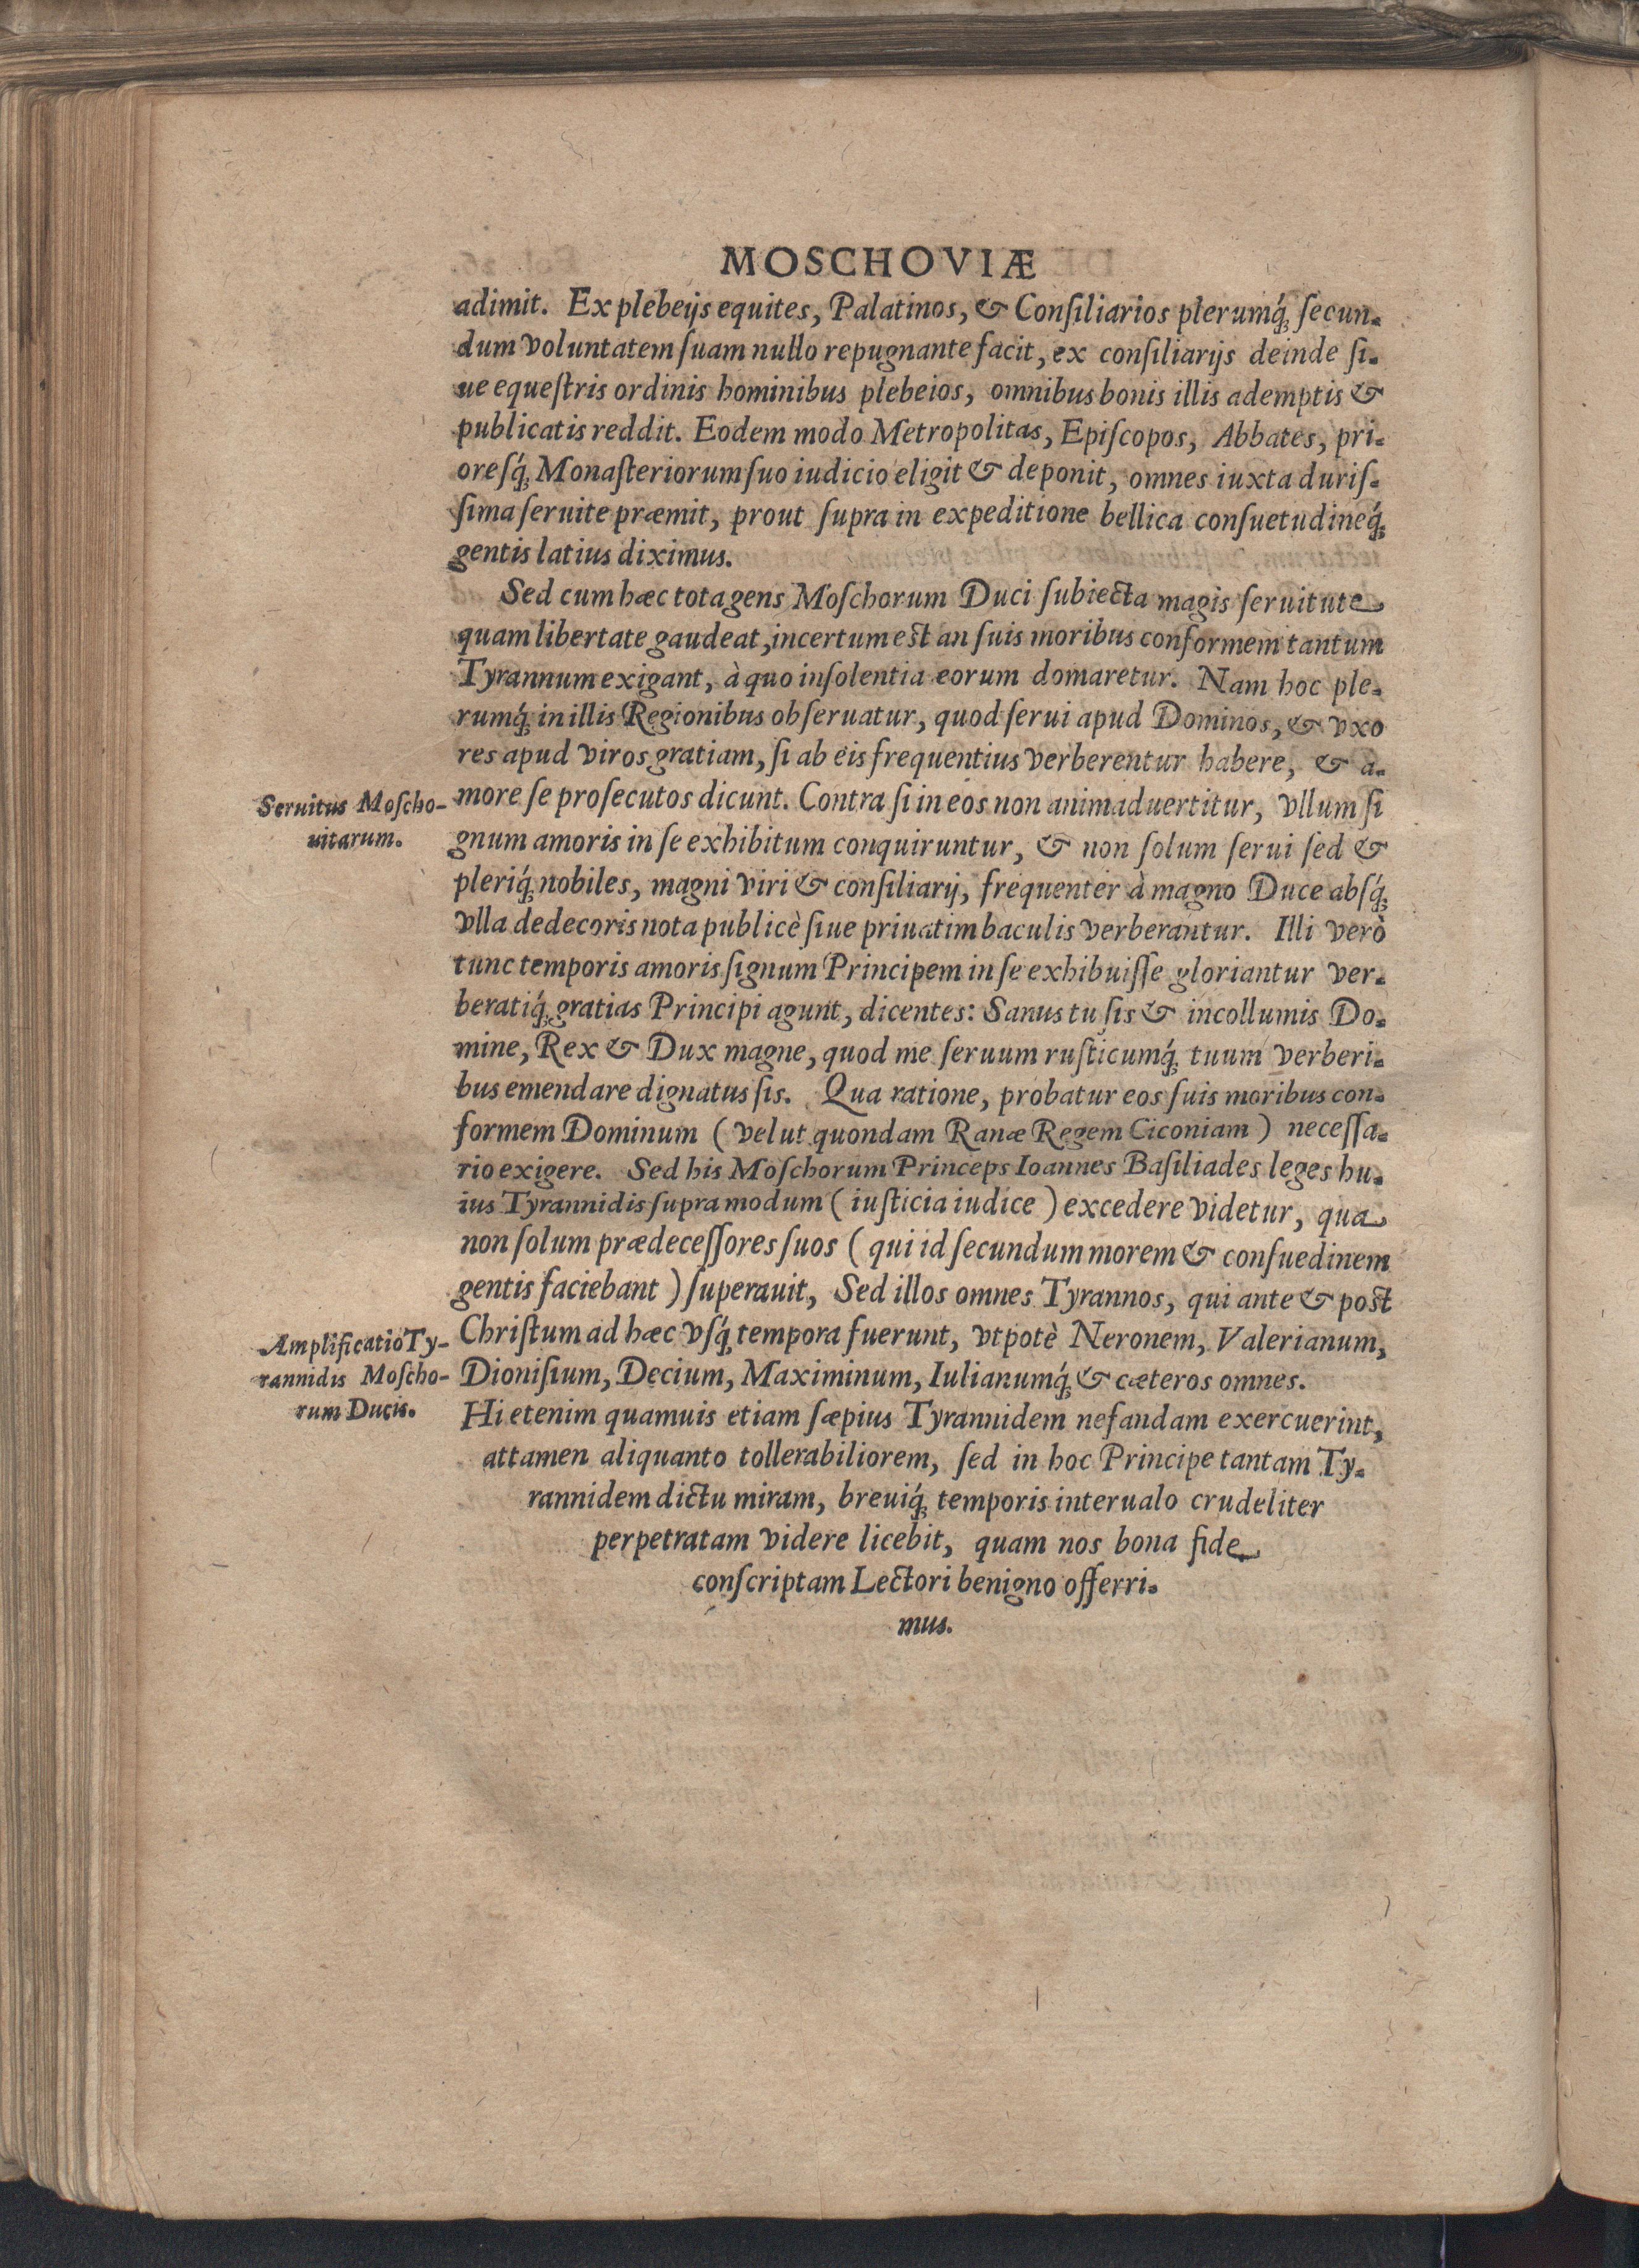 MOSCHOVIÆ
adimit. Ex plebeijs equites, Palatinos, & Conſiliarios plerumq́; ſecun-
dum voluntatem ſuam nullo repugnante facit, ex conſiliarijs deinde ſi-
ue equeſtris ordinis hominibus plebeios, omnibus bonis illis ademptis &
publicatis reddit. Eodem modo Metropolitas, Epiſcopos, Abbates, pri-
oreſq́; Monaſteriorum ſuo iudicio eligit & deponit, omnes iuxta duriſ-
ſima ſeruite præmit, prout ſupra in expeditione bellica conſuetudineq́;
gentis latius diximus.
Sed cum hæc tota gens Moſchorum Duci ſubiecta magis ſeruitute
quam libertate gaudeat, incertum est an ſuis moribus conformem tantum
Tyrannum exigant, à quo inſolentia eorum domaretur. Nam hoc ple-
rumq́; in illis Regionibus obſeruatur, quod ſerui apud Dominos, & vxo
res apud viros gratiam, ſi ab eis frequentius verberentur habere, & a-
Seruitus Moſcho-
uitarum.
more ſe proſecutos dicunt. Contra ſi in eos non animaduertitur, vllum ſi
gnum amoris in ſe exhibitum conquiruntur, & non ſolum ſerui ſed &
pleriq́; nobiles, magni viri & conſiliarij, frequenter à magno Duce abſq́;
vlla dedecoris nota publicè ſiue priuatim baculis verberantur. Illi verò
tunc temporis amoris ſignum Principem in ſe exhibuiſſe gloriantur ver-
beratiq́; gratias Principi agunt, dicentes: Sanus tu ſis & incollumis Do-
mine, Rex & Dux magne, quod me ſeruum ruſticumq́; tuum verberi-
bus emendare dignatus ſis. Qua ratione, probatur eos ſuis moribus con-
formem Dominum ( velut quondam Ranæ Regem Ciconiam ) neceſſa-
rio exigere. Sed his Moſchorum Princeps Ioannes Baſiliades leges hu-
ius Tyrannidis ſupra modum ( iuſticia iudice ) excedere videtur, qua
non ſolum prædeceſſores ſuos ( qui id ſecundum morem & conſuedinem
gentis faciebant ) ſuperauit, Sed illos omnes Tyrannos, qui ante & post
Amplificatio Ty-
rannidis Moſcho-
rum Ducis.
Chriſtum ad hæc vſq́; tempora fuerunt, vtpotè Neronem, Valerianum,
Dioniſium, Decium, Maximinum, Iulianumq́; & cæteros omnes.
Hi etenim quamuis etiam ſæpius Tyrannidem nefandam exercuerint,
attamen aliquanto tollerabiliorem, ſed in hoc Principe tantam Ty-
rannidem dictu miram, breuiq́; temporis interualo crudeliter
perpetratam videre licebit, quam nos bona fide
conſcriptam Lectori benigno offerri-
mus.